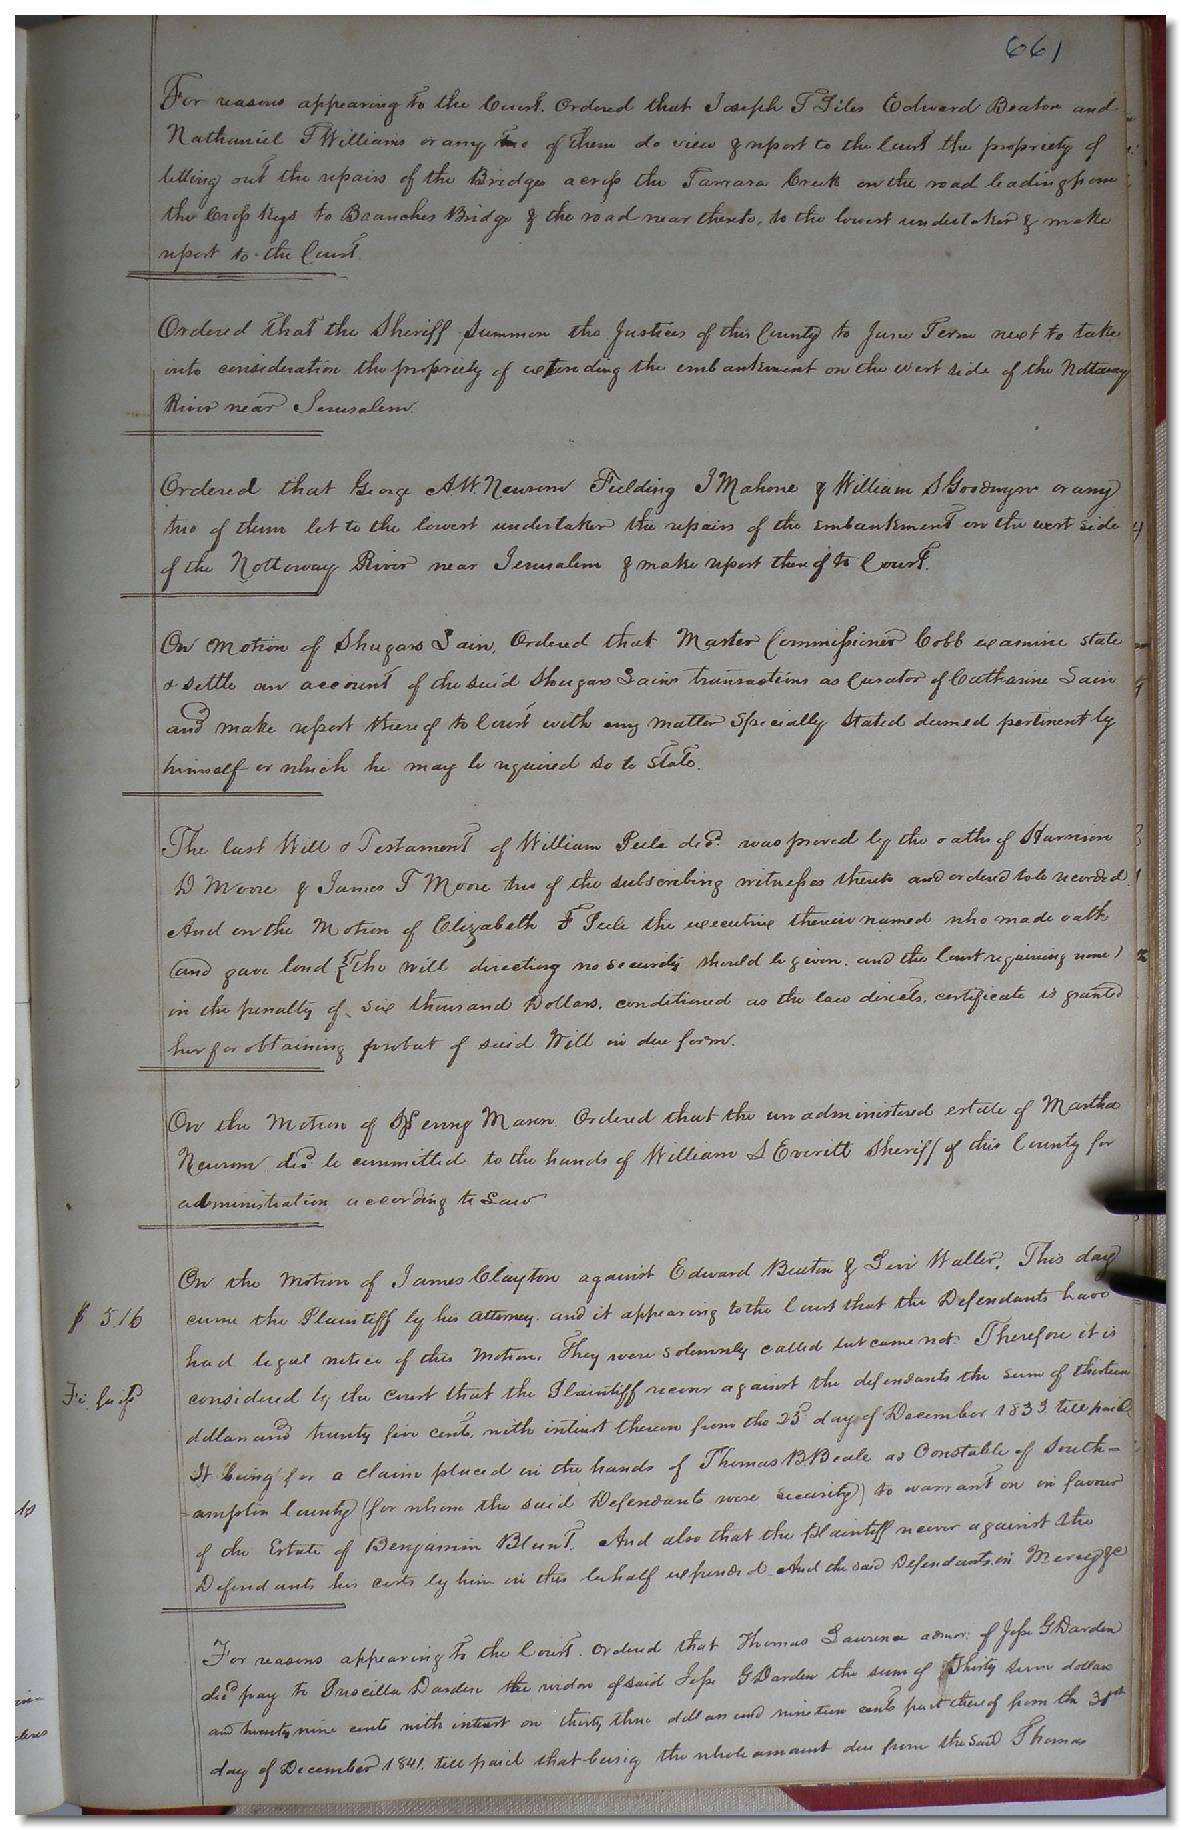 661
For reasons appearing to the Court. Ordered that Joseph T Giles Edward Beaton and
Nathaniel T Williams or any two of them do view & report to the Court the propriety of
letting out the repairs of the Bridge across the Tarrara Creek on the road leading from
the Cross Keys to Branches Bridge & the road near thereto, to the lowest undertaker & make
report to the Court.
Ordered that the Sheriff Summon the Justices of this County to June Term next to take
into consideration the propriety of extending the embankment on the west side of the Nottoway
River near Jerusalem
Ordered that George A W Newsom Fielding J Mahone & William S Goodwyn or any
two of them let to the lowest undertaker the repairs of the embankment on the west side
of the Nottoway River near Jerusalem & make report thereof to Court.
On motion of Shugars Lain, Ordered that Master Commissioner Cobb examine state
& settle an account of the said Shugars Lains transactions as Curator of Catharine Lain
and make report thereof to Court with any matter Specially Stated deemed pertinent by
himself or which he may be required so to State.
The last Will & Testament of William Peele decd. was proved by the oaths of Harrison
D Moore & James T Moore two of the subscribing witnesses thereto and ordered to be recorded.
And on the Motion of Elizabeth F Peele the executrix therein named who made oath
and gave bond (The will directing no security should be given. and the Court requiring none)
in the penalty of Six thousand Dollars, conditioned as the law directs, certificate is granted
her for obtaining probat of said Will in due form.
On the Motion of Henry Mann Ordered that the unadministered estate of Martha
Newsom decd. be committed to the hands of William S Everitt Sheriff of this County for
administration according to Law
On the Motion of James Clayton against Edward Beaton & Levi Waller. This day
$ 5.16 came the Plaintiff by his attorney. and it appearing to the Court that the Defendants have
had legal notice of this Motion, They were solemnly called but came not. Therefore it is
Fi. fa isd considered by the Court that the Plaintiff recover against the defendants the sum of thirteen
dollars and twenty five cents, with interest thereon from the 25 day of December 1833 till paid
It being for a claim placed in the hands of Thomas B Beale as Constable of South=
=ampton County (for whom the said Defendants were security) to warrant on in favour
of the Estate of Benjamin Blunt. And also that the plaintiff recover against the
Defendants his costs by him in this behalf expended And the said Defendants in Mercy &c
For reasons appearing to the Court. Ordered that Thomas Lawrence admor: of Jesse G Darden
decd pay to Priscilla Darden the widow of said Jesse G Darden the sum of Thirty seven dollars
and twenty nine cents with interest on thirty three dollars and nineteen cents part thereof from the 31st
day of December 1841. till paid that being the whole amount due from the said Thomas